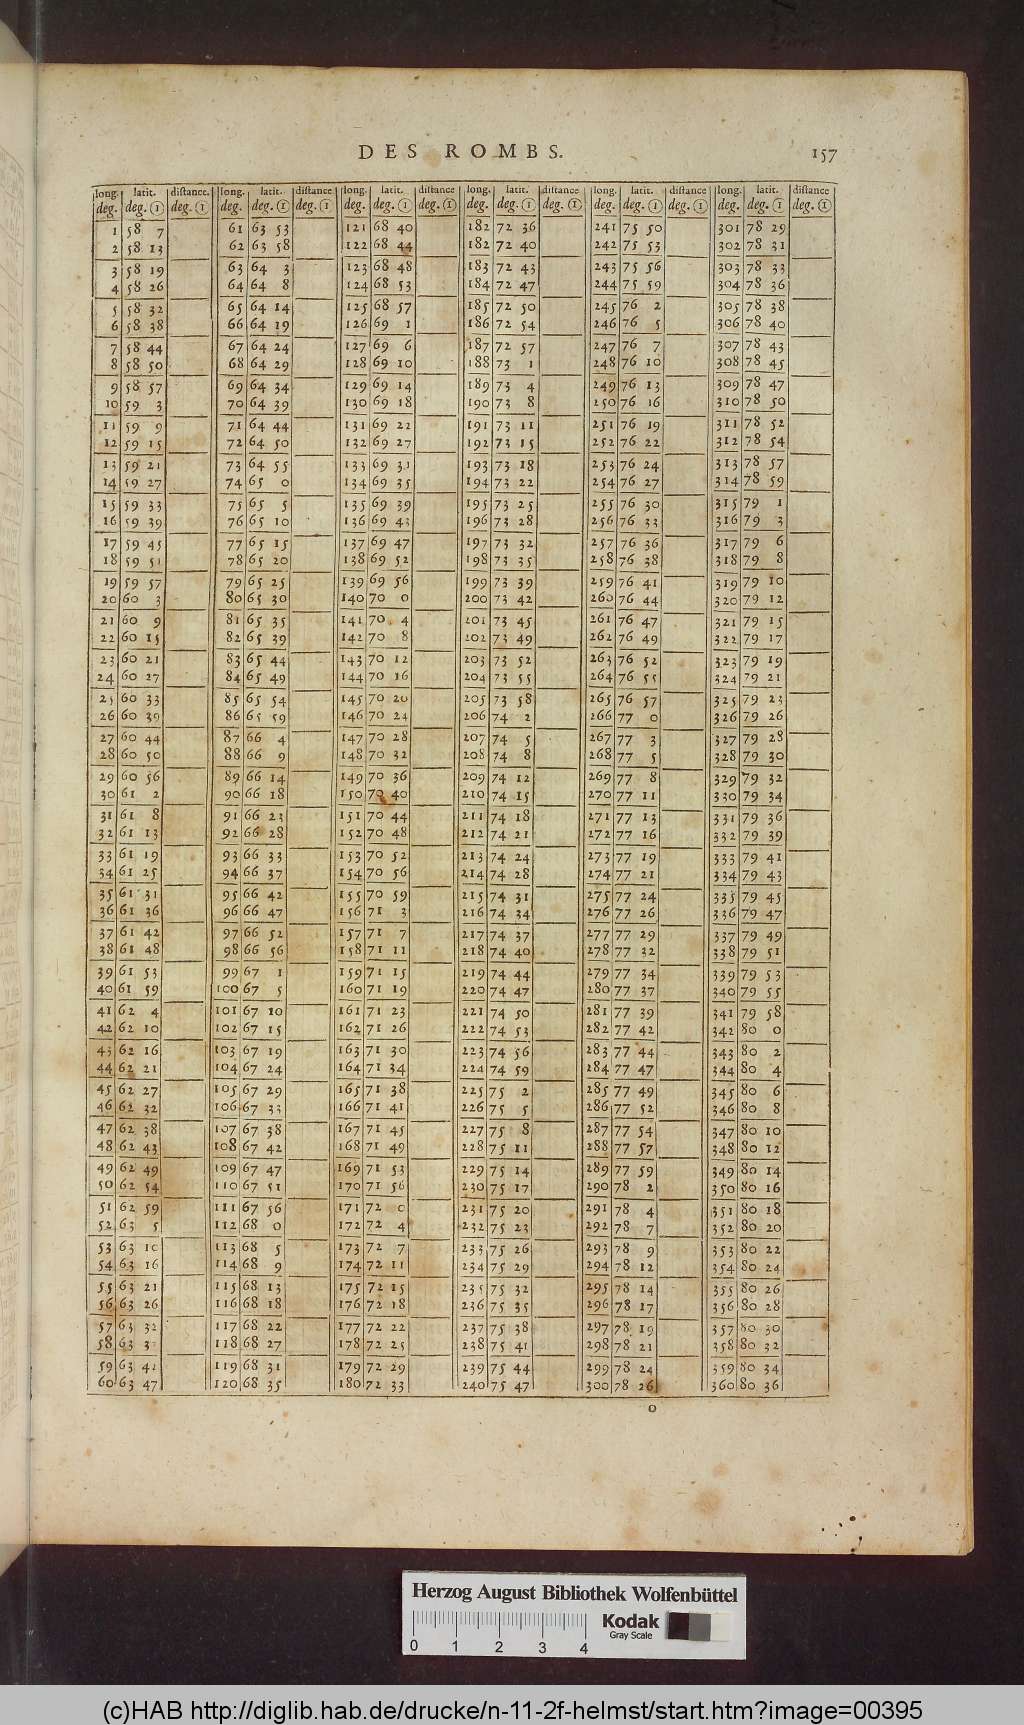 DES ROMBS. 157
long. latit. distance. long. latit. distance long. latit. distance long. latit. distance long. latit. distance long. latit. distance
deg. deg. ① deg. ① deg. deg. ① deg. ① deg. deg. ① deg. ① deg. deg. ① deg. ① deg. deg. ① deg. ① deg. deg. ① deg. ①
1 58 7 61 63 53 121 68 40 182 72 36 241 75 50 301 78 29
2 58 13 62 63 58 122 68 44 182 72 40 242 75 53 302 78 31
3 58 19 63 64 3 123 68 48 183 72 43 243 75 56 303 78 33
4 58 26 64 64 8 124 68 53 184 72 47 244 75 59 304 78 36
5 58 32 65 64 14 125 68 57 185 72 50 245 76 2 305 78 38
6 58 38 66 64 19 126 69 1 186 72 54 246 76 5 306 78 40
7 58 44 67 64 24 127 69 6 187 72 57 247 76 7 307 78 43
8 58 50 68 64 29 128 69 10 188 73 1 248 76 10 308 78 45
9 58 57 69 64 34 129 69 14 189 73 4 249 76 13 309 78 47
10 59 3 70 64 39 130 69 18 190 73 8 250 76 16 310 78 50
11 59 9 71 64 44 131 69 22 191 73 11 251 76 19 311 78 52
12 59 15 72 64 50 132 69 27 192 73 15 252 76 22 312 78 54
13 59 21 73 64 55 133 69 31 193 73 18 253 76 24 313 78 57
14 59 27 74 65 0 134 69 35 194 73 22 254 76 27 314 78 59
15 59 33 75 65 5 135 69 39 195 73 25 255 76 30 315 79 1
16 59 39 76 65 10 136 69 43 196 73 28 256 76 33 316 79 3
17 59 45 77 65 15 137 69 47 197 73 32 257 76 36 317 79 6
18 59 51 78 65 20 138 69 52 198 73 35 258 76 38 318 79 8
19 59 57 79 65 25 139 69 56 199 73 39 259 76 41 319 79 10
20 60 3 80 65 30 140 70 0 200 73 42 260 76 44 320 79 12
21 60 9 81 65 35 141 70 4 201 73 45 261 76 47 321 79 15
22 60 15 82 65 39 142 70 8 202 73 49 262 76 49 322 79 17
23 60 21 83 65 44 143 70 12 203 73 52 263 76 52 323 79 19
24 60 27 84 65 49 144 70 16 204 73 55 264 76 55 324 79 21
25 60 33 85 65 54 145 70 20 205 73 58 265 76 57 325 79 23
26 60 39 86 65 59 146 70 24 206 74 2 266 77 0 326 79 26
27 60 44 87 66 4 147 70 28 207 74 5 267 77 3 327 79 28
28 60 50 88 66 9 148 70 32 208 74 8 268 77 5 328 79 30
29 60 56 89 66 14 149 70 36 209 74 12 269 77 8 329 79 32
30 61 2 90 66 18 150 70 40 210 74 15 270 77 11 330 79 34
31 61 8 91 66 23 151 70 44 211 74 18 271 77 13 331 79 36
32 61 13 92 66 28 152 70 48 212 74 21 272 77 16 332 79 39
33 61 19 93 66 33 153 70 52 213 74 24 273 77 19 333 79 41
34 61 25 94 66 37 154 70 56 214 74 28 274 77 21 334 79 43
35 61 31 95 66 42 155 70 59 215 74 31 275 77 24 335 79 45
36 61 36 96 66 47 156 71 3 216 74 34 276 77 26 336 79 47
37 61 42 97 66 52 157 71 7 217 74 37 277 77 29 337 79 49
38 61 48 98 66 56 158 71 11 218 74 40 278 77 32 338 79 51
39 61 53 99 67 1 159 71 15 219 74 44 279 77 34 339 79 53
40 61 59 100 67 5 160 71 19 220 74 47 280 77 37 340 79 55
41 62 4 101 67 10 161 71 23 221 74 50 281 77 39 341 79 58
42 62 10 102 67 15 162 71 26 222 74 53 282 77 42 342 80 0
43 62 16 103 67 19 163 71 30 223 74 56 283 77 44 343 80 2
44 62 21 104 67 24 164 71 34 224 74 59 284 77 47 344 80 4
45 62 27 105 67 29 165 71 38 225 75 2 285 77 49 345 80 6
46 62 32 106 67 33 166 71 41 226 75 5 286 77 52 346 80 8
47 62 38 107 67 38 167 71 45 227 75 8 287 77 54 347 80 10
48 62 43 108 67 42 168 71 49 228 75 11 288 77 57 348 80 12
49 62 49 109 67 47 169 71 53 229 75 14 289 77 59 349 80 14
50 62 54 110 67 51 170 71 56 230 75 17 290 78 2 350 80 16
51 62 59 111 67 56 171 72 0 231 75 20 291 78 4 351 80 18
52 63 5 112 68 0 172 72 4 232 75 23 292 78 7 352 80 20
53 63 10 113 68 5 173 72 7 233 75 26 293 78 9 353 80 22
54 63 16 114 68 9 174 72 11 234 75 29 294 78 12 354 80 24
55 63 21 115 68 13 175 72 15 235 75 32 295 78 14 355 80 26
56 63 26 116 68 18 176 72 18 236 75 35 296 78 17 356 80 28
57 63 32 117 68 22 177 72 22 237 75 38 297 78 19 357 80 30
58 63 118 68 27 178 72 25 238 75 41 298 78 21 358 80 32
59 63 42 119 68 31 179 72 29 239 75 44 299 78 24 359 80 34
60 63 47 120 68 35 180 72 33 240 75 47 300 78 26 360 80 36
O
Herzog August Bibliothek Wolfenbüttel
Kodak
Gray Scale
0 1 2 3 4
(c)HAB http://diglib.hab.de/drucke/n-11-2f-helmst/start.htm?image=00395